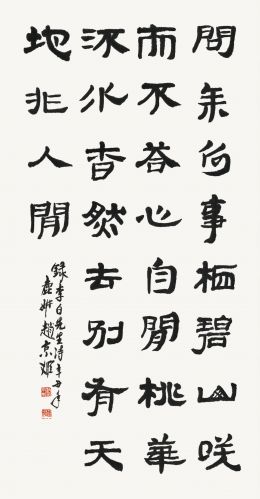 問余何事栖碧山咲
而不荅心自閒桃華
流水杳然去別有天
地非人閒
錄李白先生詩辛丑年
趙京